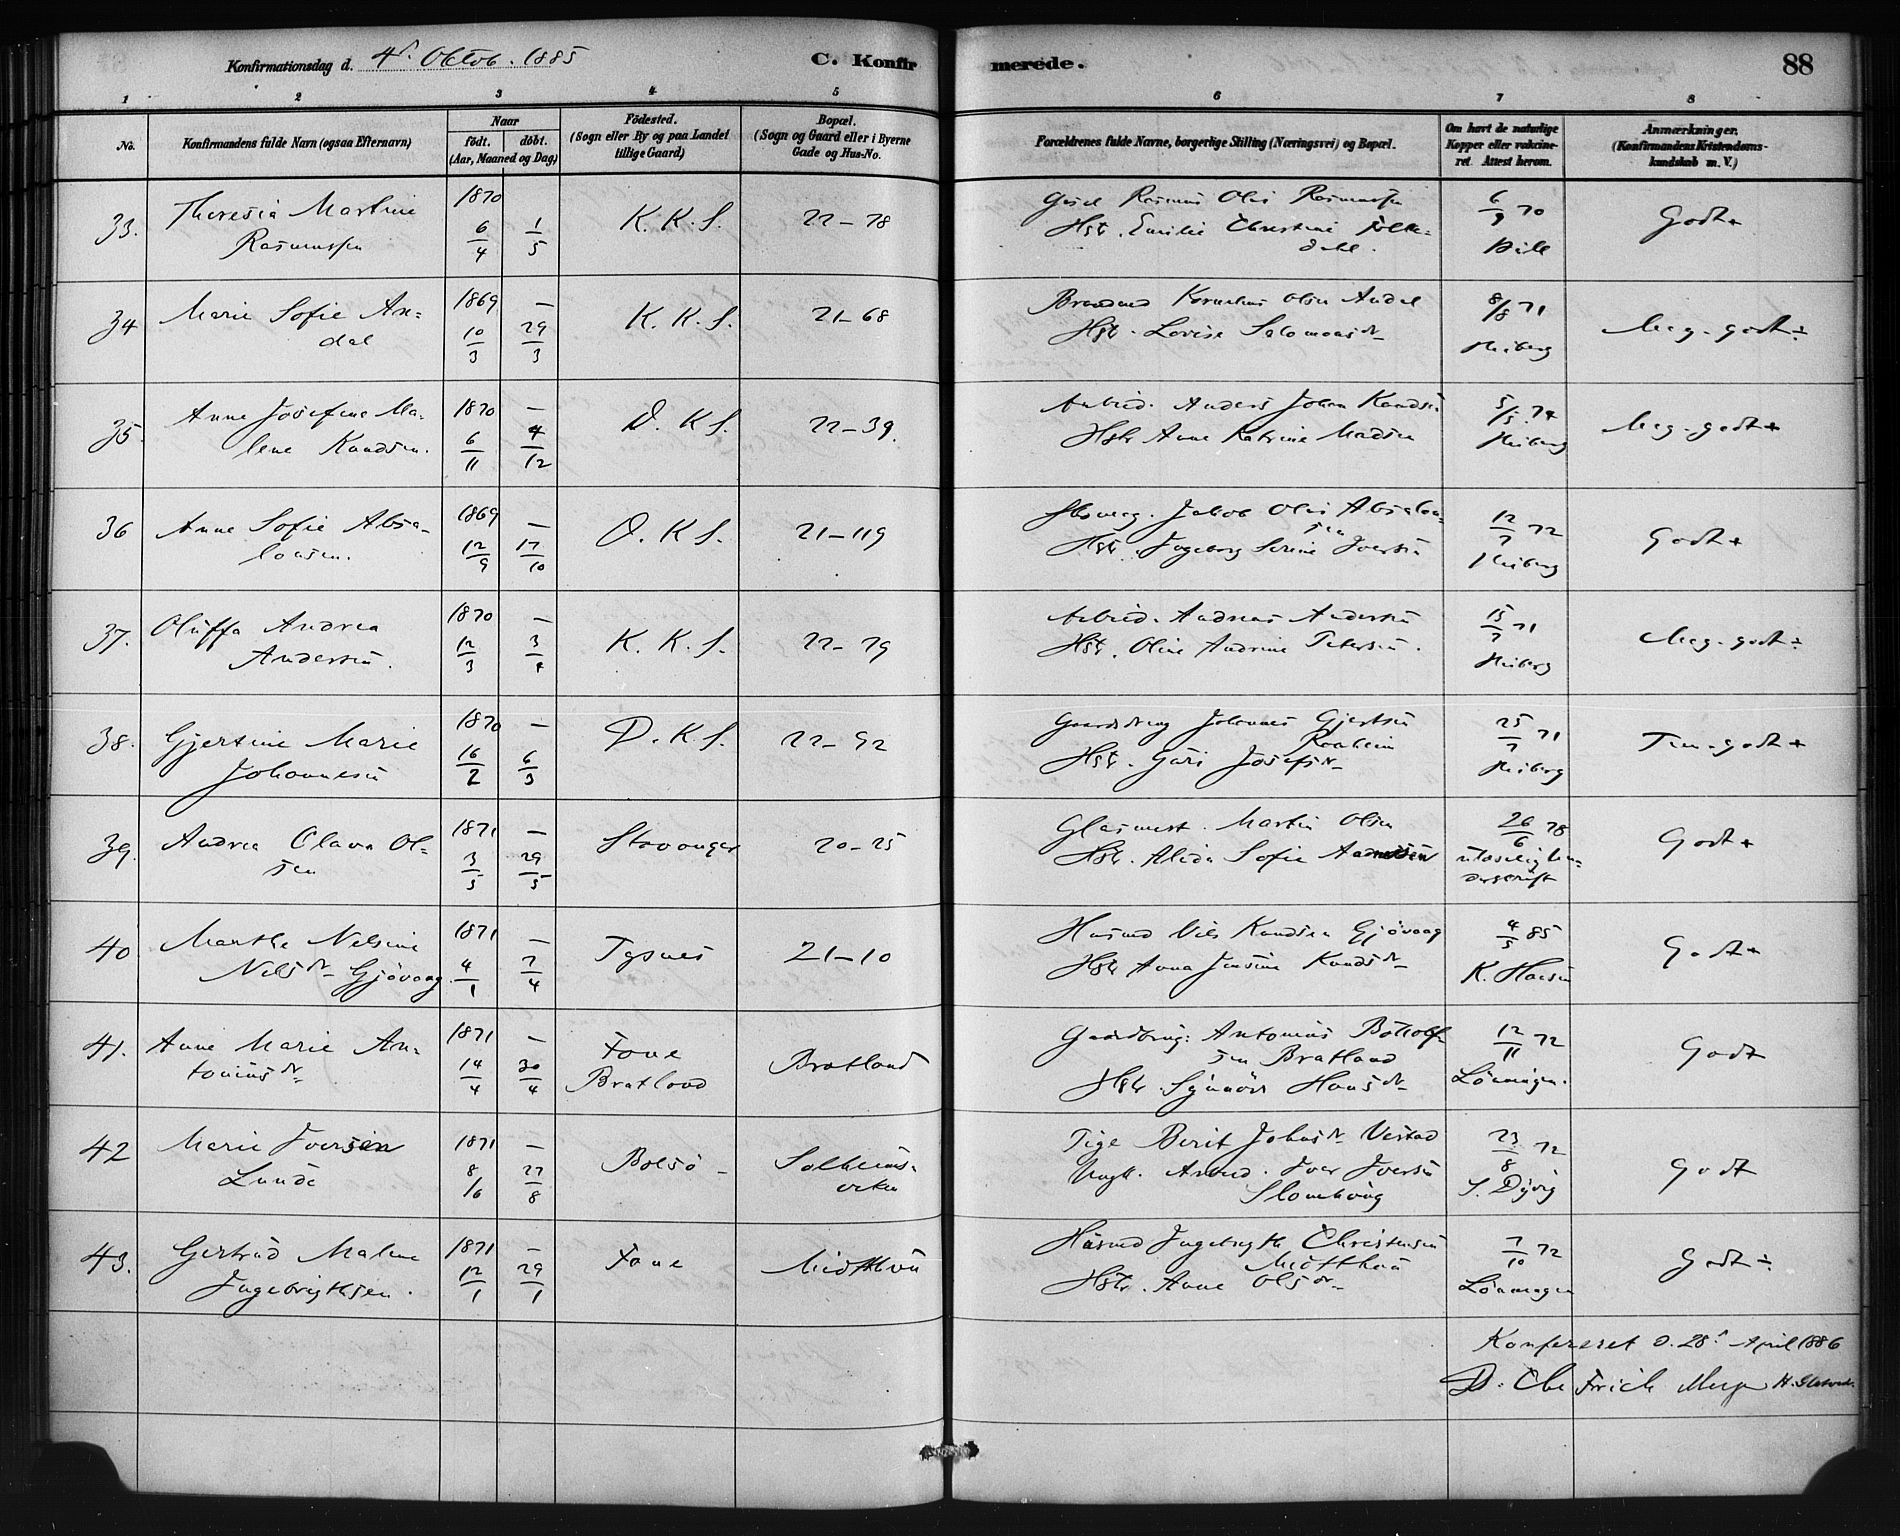 Konfirmationsdag d. 4de Oktob. 1885
C. Konfirmerede.
88
1 2 3 4 5 6 7 8
No.
Konfirmandens fulde Navn (ogsaa Efternavn)
Naar
födt. döbt.
(Aar, Maaned og Dag)
Födested.
(Sogn eller By og paa Landet
tillige Gaard)
Bopæl.
(Sogn og Gaard eller i Byerne
Gade og Hus-No.
Forældrenes fulde Navne, borgerlige Stilling (Næringsvei) og Bopæl.
Om havt de naturlige
Kopper eller vakcine-
ret. Attest herom.
Anmærkninger.
(Konfirmandens Kristendoms-
kundskab m. V.)
33. Theresia Martine
Rasmussen
1870
6/4 1/5
K. K. S.
22-78
Rasmus Olai Rasmussen
Hstr. Emilie Christine
6/9 70
Godt+
34 Marie Sofie An-
dal
1869 —
10/3 29/3
K. K. S.
21-68
Kornelius Olsen Andal
Hstr. Lovise Salomonsdr
8/8 71
Heiberg
Meg. godt ÷
35. Anne Josefine Ma-
lene Knudsen.
1870 —
6/11 4/12
D. K. S.
22-39.
Arbeid. Anders Johan Knudsen
Hstr Anne Katrine Madsen
5/5. 74
Heiberg
Meg. godt +
36 Anne Sofie Absa-
lonsen.
1869 —
12/9 17/10
D. K. S.
21-119
Jakob Olai Absalon-
sen
Hstr. Ingeborg Serine Iversen
12/7 72
Heiberg
Godt +
37. Oluffa Andrea
Andersen.
1870 —
12/3 3/4
K. K. S.
22-79
Arbeid. Andreas Andersen
Hstr. Oline Andrine Petersen.
15/7 71
Heiberg
Meg. godt ÷
38. Gjertine Marie
Johannesen
1870 —
16/2 6/3
D. K. S.
22-92
Johannes Gjertsen
Hstr. Guri Josefsdr
25/7 71
Heiberg
Tem. godt +
39. Andrea Olava Ol-
sen
1871 —
3/5 29/5
Stavanger
20-25
Glasmest. Martin Olsen
Hstr. Alida Sofie
26/6 78
ulæselig Un-
derskrift
Godt +
40 Marthe Nelsine
Nelsdr Gjövaag.
1871 —
4/1 7/4
Tysnes
21-10
Husmd Nils Knudsen Gjövaag
Hstr Anna Jensine Knudsdr
4/5 85
K. Hansen
Godt +
41. Anne Marie An-
toniusdr
1871 —
14/4 30/4
Fane
Bratland
Bratland
Gaardbrug: Antonius Botolf-
sen Bratland
Hstr. Synnöve Hansdr
12/11 72
Lönningen.
Godt
42 Marie Iversen
Lunde
1871 —
8/6 27/8
Bolsö
Solheims-
viken
Pige Berit Johnsdr Vestad
Ungk. Arbeid. Iver Iversen
23/8 72
Godt
43. Gertrud Malene
Ingebrigtsen.
1871 —
12/1 29/1
Fane
Midthun
Husmd Ingebrigth Christensen
Midtthun
Hstr. Anne Olsdr
7/10 72
Lönningen
Godt ÷
Konfereret d. 28de April 1886